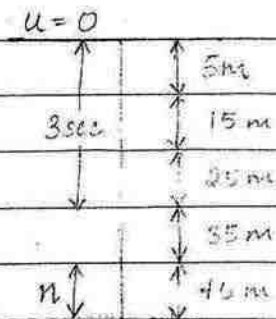 u = 0
5m
3sec
15 m
25 m
35 m
n
45 m